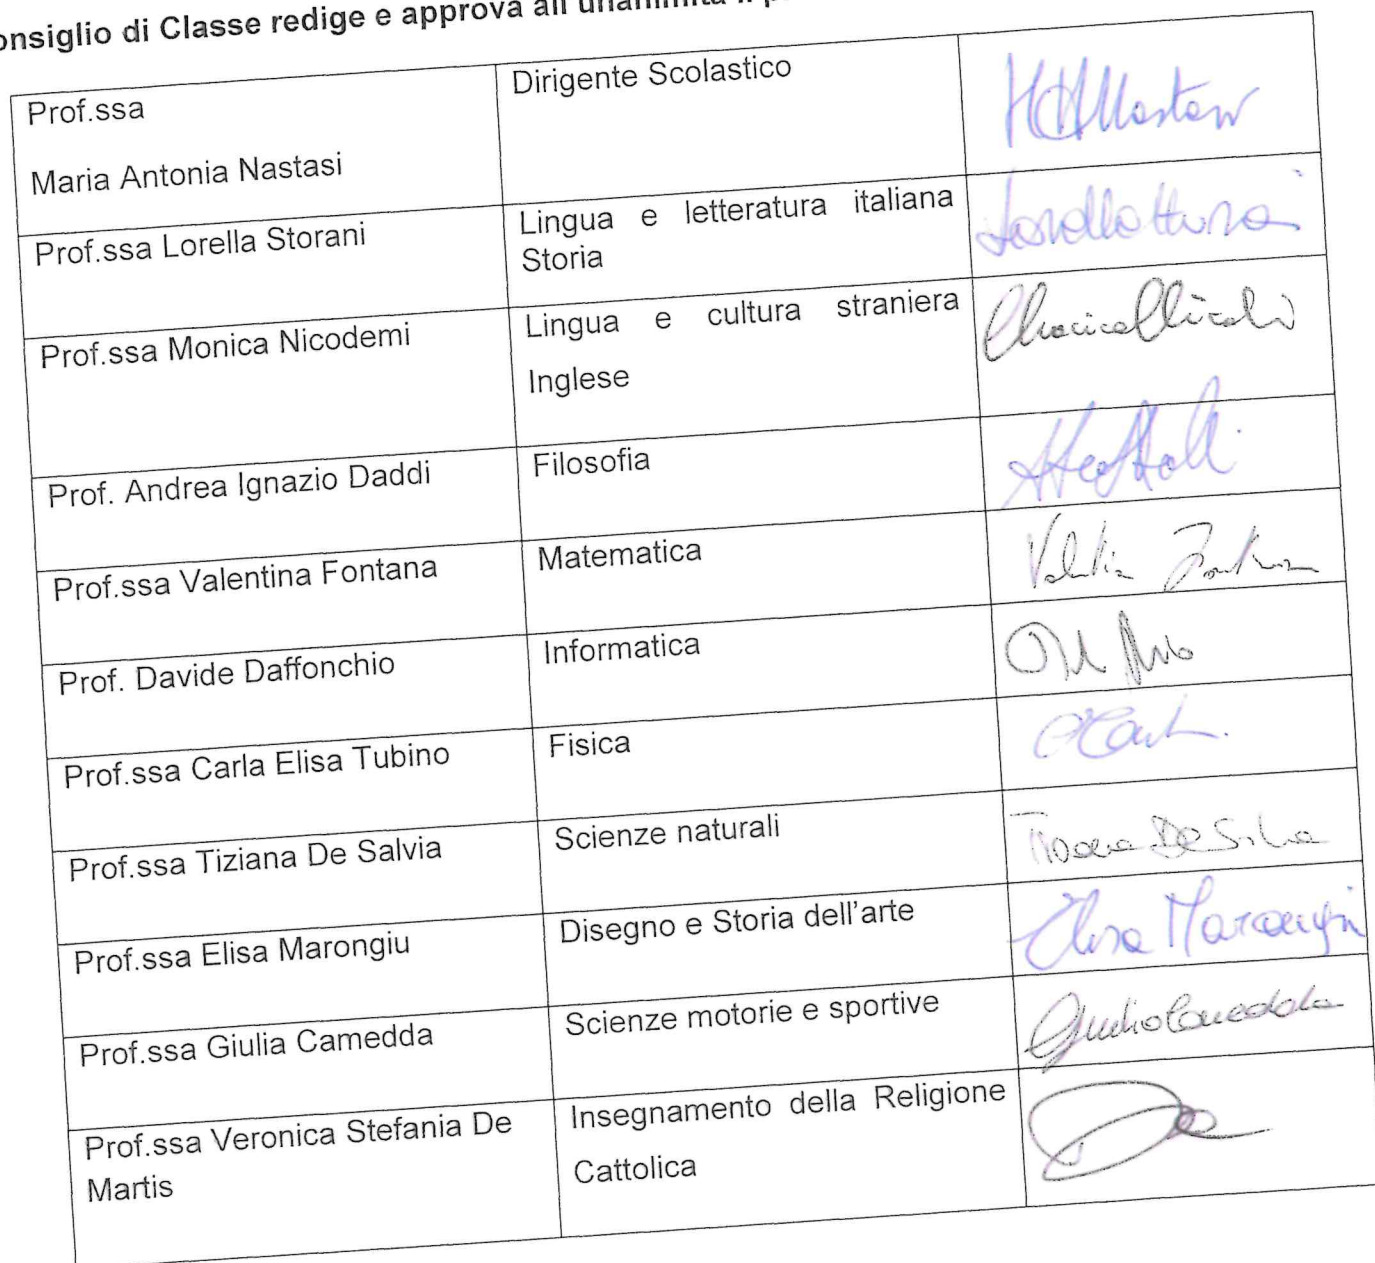 onsiglio di Classe redige e approva all'unanimità il p
Prof.ssa
Maria Antonia Nastasi
Dirigente Scolastico
Prof.ssa Lorella Storani
Lingua e letteratura italiana
Storia
Prof.ssa Monica Nicodemi
Lingua e cultura straniera
Inglese
Prof. Andrea Ignazio Daddi
Filosofia
Prof.ssa Valentina Fontana
Matematica
Valentina Fontana
Prof. Davide Daffonchio
Informatica
Prof.ssa Carla Elisa Tubino
Fisica
Prof.ssa Tiziana De Salvia
Scienze naturali
Prof.ssa Elisa Marongiu
Disegno e Storia dell'arte
Elisa Marongiu
Prof.ssa Giulia Camedda
Scienze motorie e sportive
Giulia Camedda
Prof.ssa Veronica Stefania De
Martis
Insegnamento della Religione
Cattolica